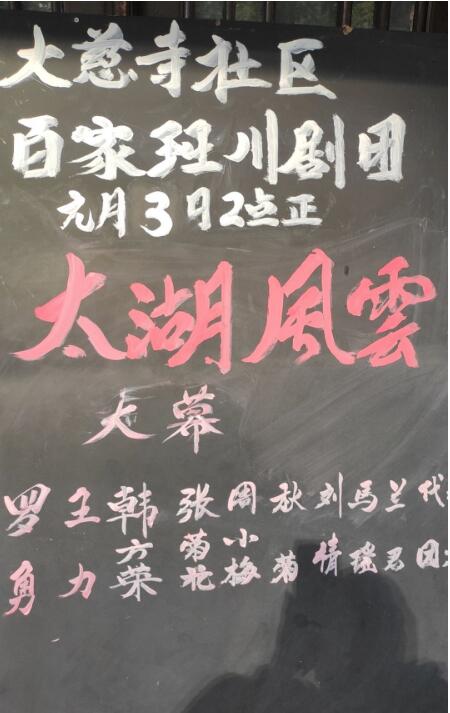 大慈寺社区
百家班川剧团
元月3日2点正
太湖風雲
大幕
罗勇
王力
韩方荣
张菊花
周小梅
秋菊
刘情
马瑶
兰君
代团